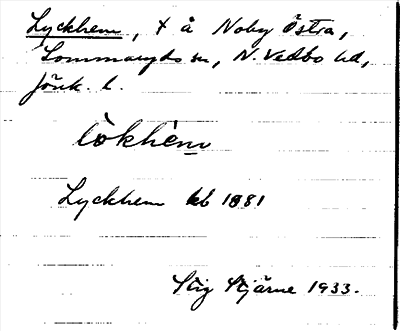 Lyckhem, t å Noby Östra,
Sommaryds sn, N. Vedbo hd,
Jönk. l.
lökhèm
Lyckhem kb 1881
Stig Stjärne 1933.